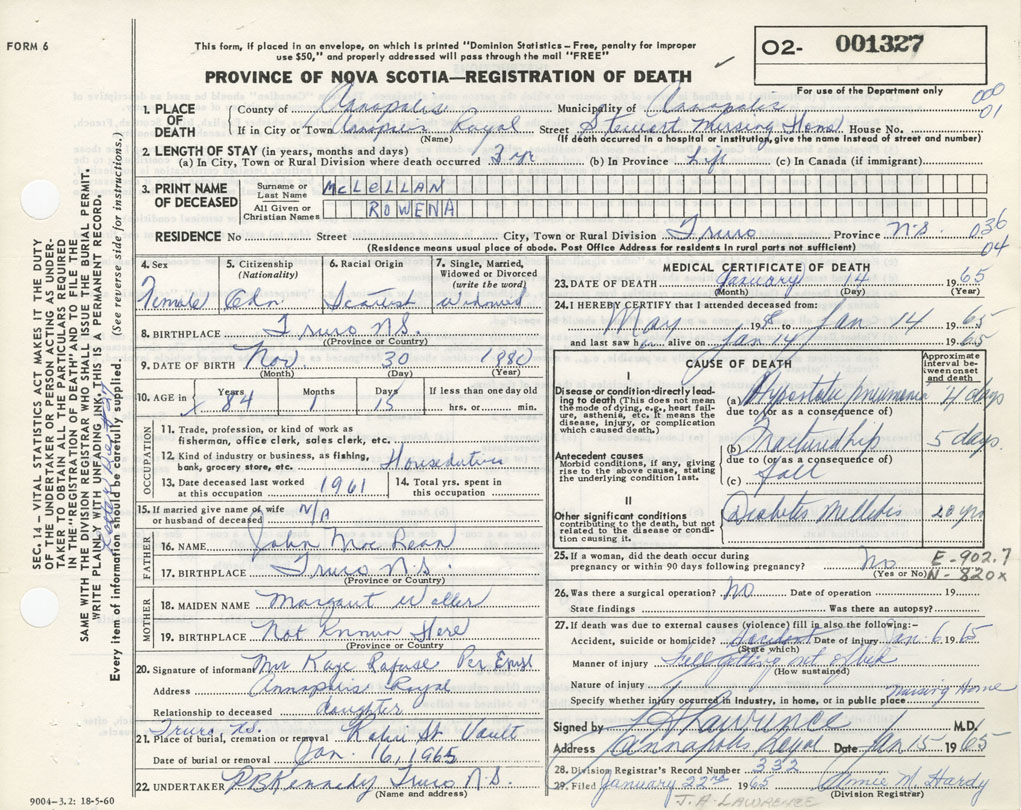 FORM 6
This form, if placed in an envelope, on which is printed "Dominion Statistics – Free, penalty for improper
use $50," and properly addressed will pass through the mail "FREE"
PROVINCE OF NOVA SCOTIA—REGISTRATION OF DEATH
O2- 001327
For use of the Department only
000
01
1. PLACE OF DEATH
County of Annapolis Municipality of Annapolis
If in City or Town Annapolis Royal Street Stewart Nursing Home House No.
(Name) (If death occurred in a hospital or institution, give the name instead of street and number)
2. LENGTH OF STAY (in years, months and days)
(a) In City, Town or Rural Division where death occurred 3 yr (b) In Province Life (c) In Canada (if immigrant)
3. PRINT NAME OF DECEASED
Surname or Last Name McLELLAN
All Given or Christian Names ROWENA
RESIDENCE No Street City, Town or Rural Division Truro Province N.S.
036
04
(Residence means usual place of abode. Post Office Address for residents in rural parts not sufficient)
4. Sex Female
5. Citizenship (Nationality) Cdn.
6. Racial Origin
7. Single, Married, Widowed or Divorced (write the word) Widowed
8. BIRTHPLACE Truro N.S.
(Province or Country)
9. DATE OF BIRTH Nov 30 1880
(Month) (Day) (Year)
10. AGE in Years 84 Months 1 Days 15 If less than one day old hrs. or min.
OCCUPATION
11. Trade, profession, or kind of work as fisherman, office clerk, sales clerk, etc.
12. Kind of industry or business, as fishing, bank, grocery store, etc. Houseduties
13. Date deceased last worked at this occupation 1961
14. Total yrs. spent in this occupation
15. If married give name of wife or husband of deceased N/A
FATHER
16. NAME John Mac Bean
17. BIRTHPLACE Truro N.S.
(Province or Country)
MOTHER
18. MAIDEN NAME Margaret Waller
19. BIRTHPLACE Not Known Here
(Province or Country
20. Signature of informant Mrs Kaye
Address Annapolis Royal
Relationship to deceased daughter
21. Place of burial, cremation or removal Truro, N.S. St. Vault
Date of burial or removal Jan. 16, 1965
22. UNDERTAKER P.B. Kennedy Truro N.S.
(Name and address)
9004–3.2: 18-5-60
MEDICAL CERTIFICATE OF DEATH
23. DATE OF DEATH January 14 1965
(Month) (Day) (Year)
24. I HEREBY CERTIFY that I attended deceased from:
May 19 to Jan 14 1965
and last saw her alive on Jan 14 1965
CAUSE OF DEATH
Approximate interval between onset and death
I
Disease or condition directly leading to death (This does not mean the mode of dying, e.g., heart failure, asthenia, etc. It means the disease, injury, or complication which caused death.)
(a) Hypostatic pneumonia 4 days
due to (or as a consequence of)
(b) Fractured hip 5 days
Antecedent causes
Morbid conditions, if any, giving rise to the above cause, stating the underlying condition last.
due to (or as a consequence of)
(c) fall
II
Other significant conditions
contributing to the death, but not related to the disease or condition causing it.
Diabetes Mellitis 20 yrs
25. If a woman, did the death occur during pregnancy or within 90 days following pregnancy? No
(Yes or No)
E-902.7
N-820x
26. Was there a surgical operation? NO Date of operation 19
State findings Was there an autopsy?
27. If death was due to external causes (violence) fill in also the following:–
Accident, suicide or homicide? Accident Date of injury Jan 6 1965
(State which)
Manner of injury Fell getting out of bed
(How sustained)
Nature of injury
Specify whether injury occurred in Industry, in home, or in public place Nursing Home
Signed by Lawrence M.D.
Address Annapolis Royal Date Jan 15 1965
28. Division Registrar's Record Number 332
29. Filed January 22nd 1965 Annie M. Hardy
(Division Registrar)
J. A. LAWRENCE
SEC. 14 – VITAL STATISTICS ACT MAKES IT THE DUTY
OF THE UNDERTAKER OR PERSON ACTING AS UNDER-
TAKER TO OBTAIN ALL THE PARTICULARS REQUIRED
IN THE "REGISTRATION OF DEATH" AND TO FILE THE
SAME WITH THE DIVISION REGISTRAR WHO SHALL ISSUE THE BURIAL PERMIT.
WRITE PLAINLY WITH UNFADING INK. THIS IS A PERMANENT RECORD.
Every item of information should be carefully supplied. (See reverse side for instructions.)